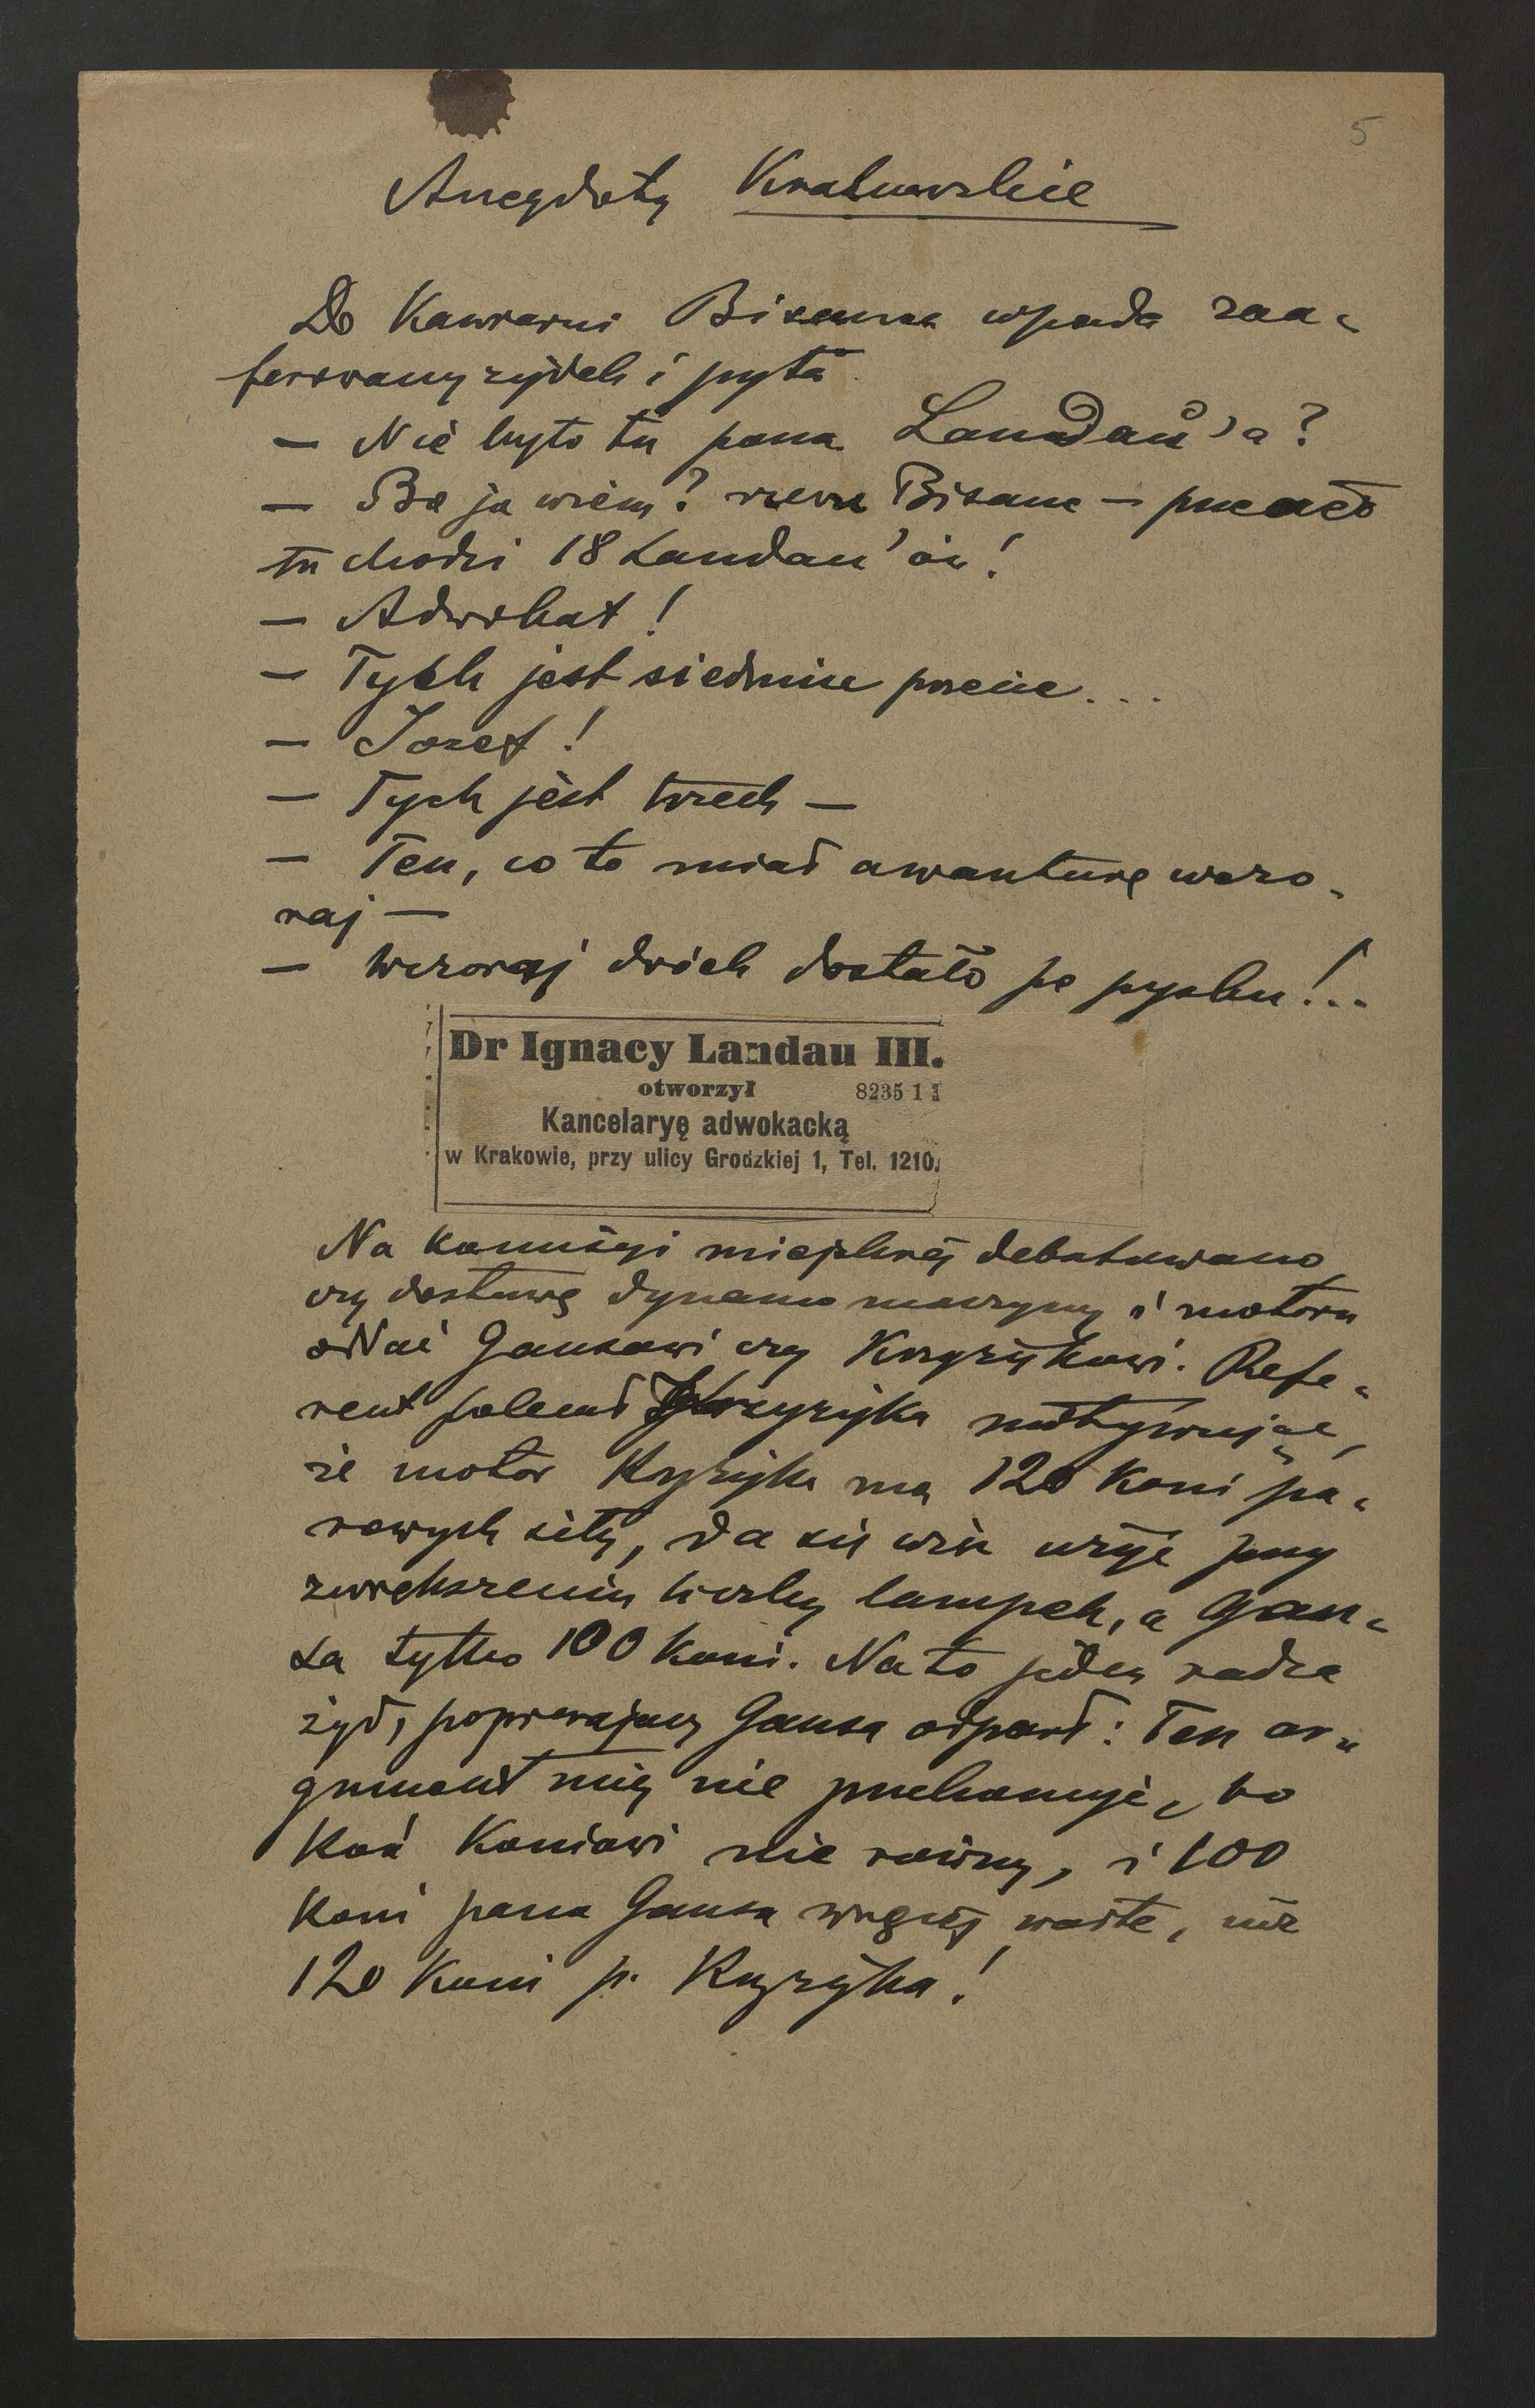 5
Anegdoty Krakowskie
Do Kawiarni Bisanza wpada zaa-
ferowany żydek i pyta
– Nie było tu pana Landau'a?
– Bo ja wiem? rzecze Bisanz – przecież
tu chodzi 18 Landau'ów!
– Adwokat!
– Tych jest siedmiu panie...
– Józef!
– Tych jest trzech –
– Ten, co to miał awanturę wczo-
raj –
– Wczoraj dwóch dostało po pysku!..
Dr Ignacy Landau III.
otworzył 8235 1 1
Kancelaryę adwokacką
w Krakowie, przy ulicy Grodzkiej 1, Tel. 1210.
Na komisyi miejskiej debatowano
czy dostawę dynamo maszyny i motoru
oddać Gansowi czy Krzyżykowi. Refe-
rent polecał Krzyżyka motywując,
że motor Krzyżyka ma 120 koni pa-
rowych siły, da się więc użyć przy
zwiększeniu liczby lampek, a Gan-
sa tylko 100 koni. Na to jeden radca
żyd, popierający Gansa odparł: Ten ar-
gument mię nie przekonuje, bo
koń koniowi nie równy, i 100
koni pana Gansa więcej warte, niż
120 koni p. Krzyżyka!